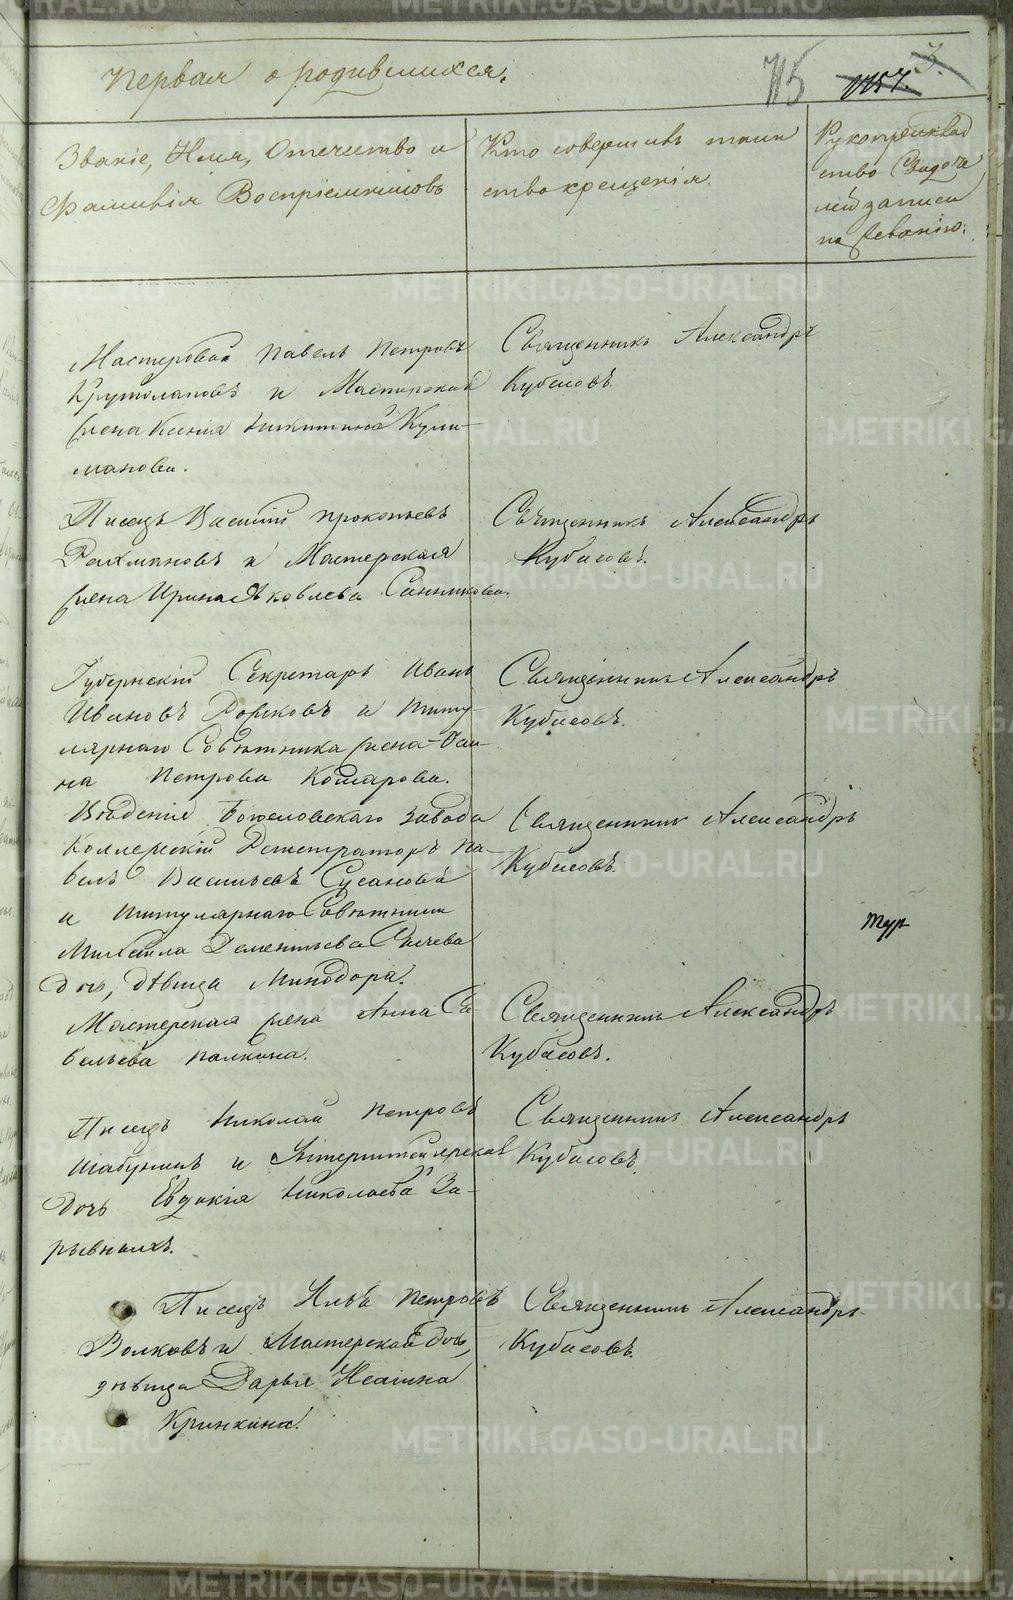 Первая о родившихся.
115
Званіе, Имя, Отечество и
Фамилія Воспріемниковъ
Кто совершилъ таин
ство крещенія.
Рукоприклад
ство Свидете
лей записи
по желанію.
Мастеровой Павелъ Петровъ
Крутолаповъ и Мастерская
жена Ксенія Никитина Кули-
манова.
Священникъ Александръ
Кубасовъ.
Писецъ Василій Прокопьевъ
Рахмановъ и Мастерская
жена Ирина Яковлева Санникова.
Священникъ Александръ
Кубасовъ.
Губернскій Секретарь Иванъ
Ивановъ и Титу-
лярнаго Совѣтника жена
на Петрова Комарова.
Священникъ Александръ
Кубасовъ.
Вѣденія Богословскаго завода
Коллежскій Регистраторъ Па-
велъ Васильевъ Сусановъ
и Титулярнаго Совѣтника
Михаила Дементьева
Дочь, дѣвица Минодора.
Священникъ Александръ
Кубасовъ.
Мастерская жена Анна Са-
вельева Палкина.
Священникъ Александръ
Кубасовъ.
Писецъ Николай Петровъ
Шабунинъ и Унтершихмейстерская
Дочь Евдокія Николаева За-
рывныхъ.
Священникъ Александръ
Кубасовъ.
Писецъ Илья Петровъ
Волковъ и Мастерская Дочь,
дѣвица Дарья Исаіина
Кринкина.
Священникъ Александръ
Кубасовъ.
METRIKI.GASO-URAL.RU